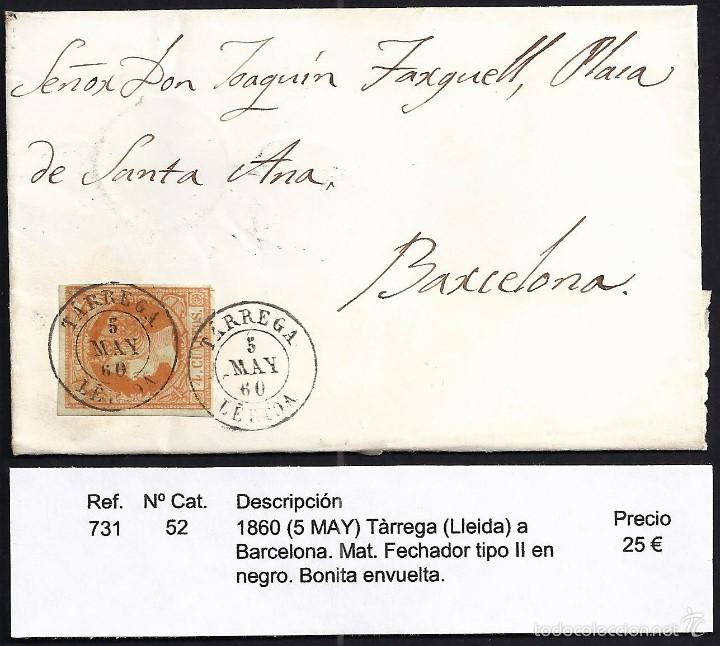 Señor Don Joaquín Farguell, Plaza
de Santa Ana.
Barcelona.
TÁRREGA
5
MAY
60
LÉRIDA
4. CUARTOS.
TÁRREGA
5
MAY
60
LÉRIDA
Ref. Nº Cat. Descripción Precio
731 52 1860 (5 MAY) Tàrrega (Lleida) a 25 €
Barcelona. Mat. Fechador tipo II en
negro. Bonita envuelta.
todocoleccion.net